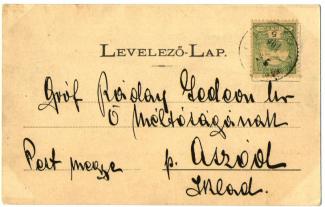 LEVELEZŐ-LAP.
Gróf Ráday Gedeon úr
Ő Méltóságának
Pest megye p. Aszód
Iklad.